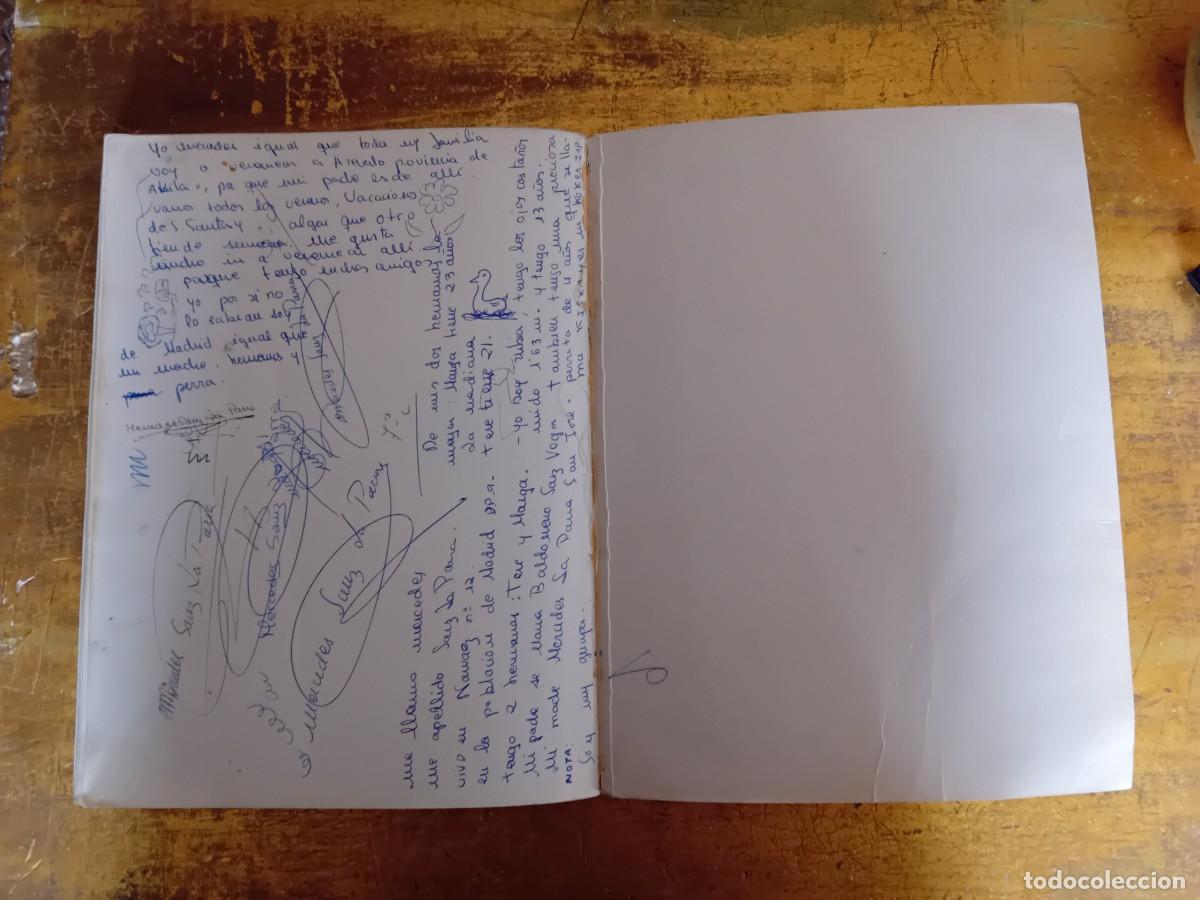 Yo mercedes igual que toda my familia
voy a veranear a Arevalo provincia de
Abila, pa que mi pade es de alli.
vamos todos los veranos, Vacaciones
de S. Santa y algun que otro
Me gusta
mucho ir a veranear alli
porque tengo muchos amigos
yo por si no
lo sabian soy
de Madrid igual que
mi madre, hermanas y
perra.
Mercedes Sanz La Parra
M
Mercedes Sanz
Mercedes Sanz La Parra
Mercedes Sanz
Mercedes Sanz La Parra
me llamo mercedes
me apellido Sanz La Parra.
vivo en Narvaez nº 12
en la poblacion de Madrid D.P.9.
tengo 2 hermanas: Tere y Marga.
Mi pade se llama Baldomero Sanz Vega
Mi made Mercedes La Parra San José.
NOTA:
Soy muy guapa.
De mis dos hermanas la
mayor: Marga tiene 23 años
La mediana
tere tiene 21.
- Yo soy rubia, tengo los ojos castaños
mido 1'63 m. y tengo 13 años.
tambien tengo una preciosa
perrita de 4 años que se lla-
ma KISKA y es un
todocoleccion